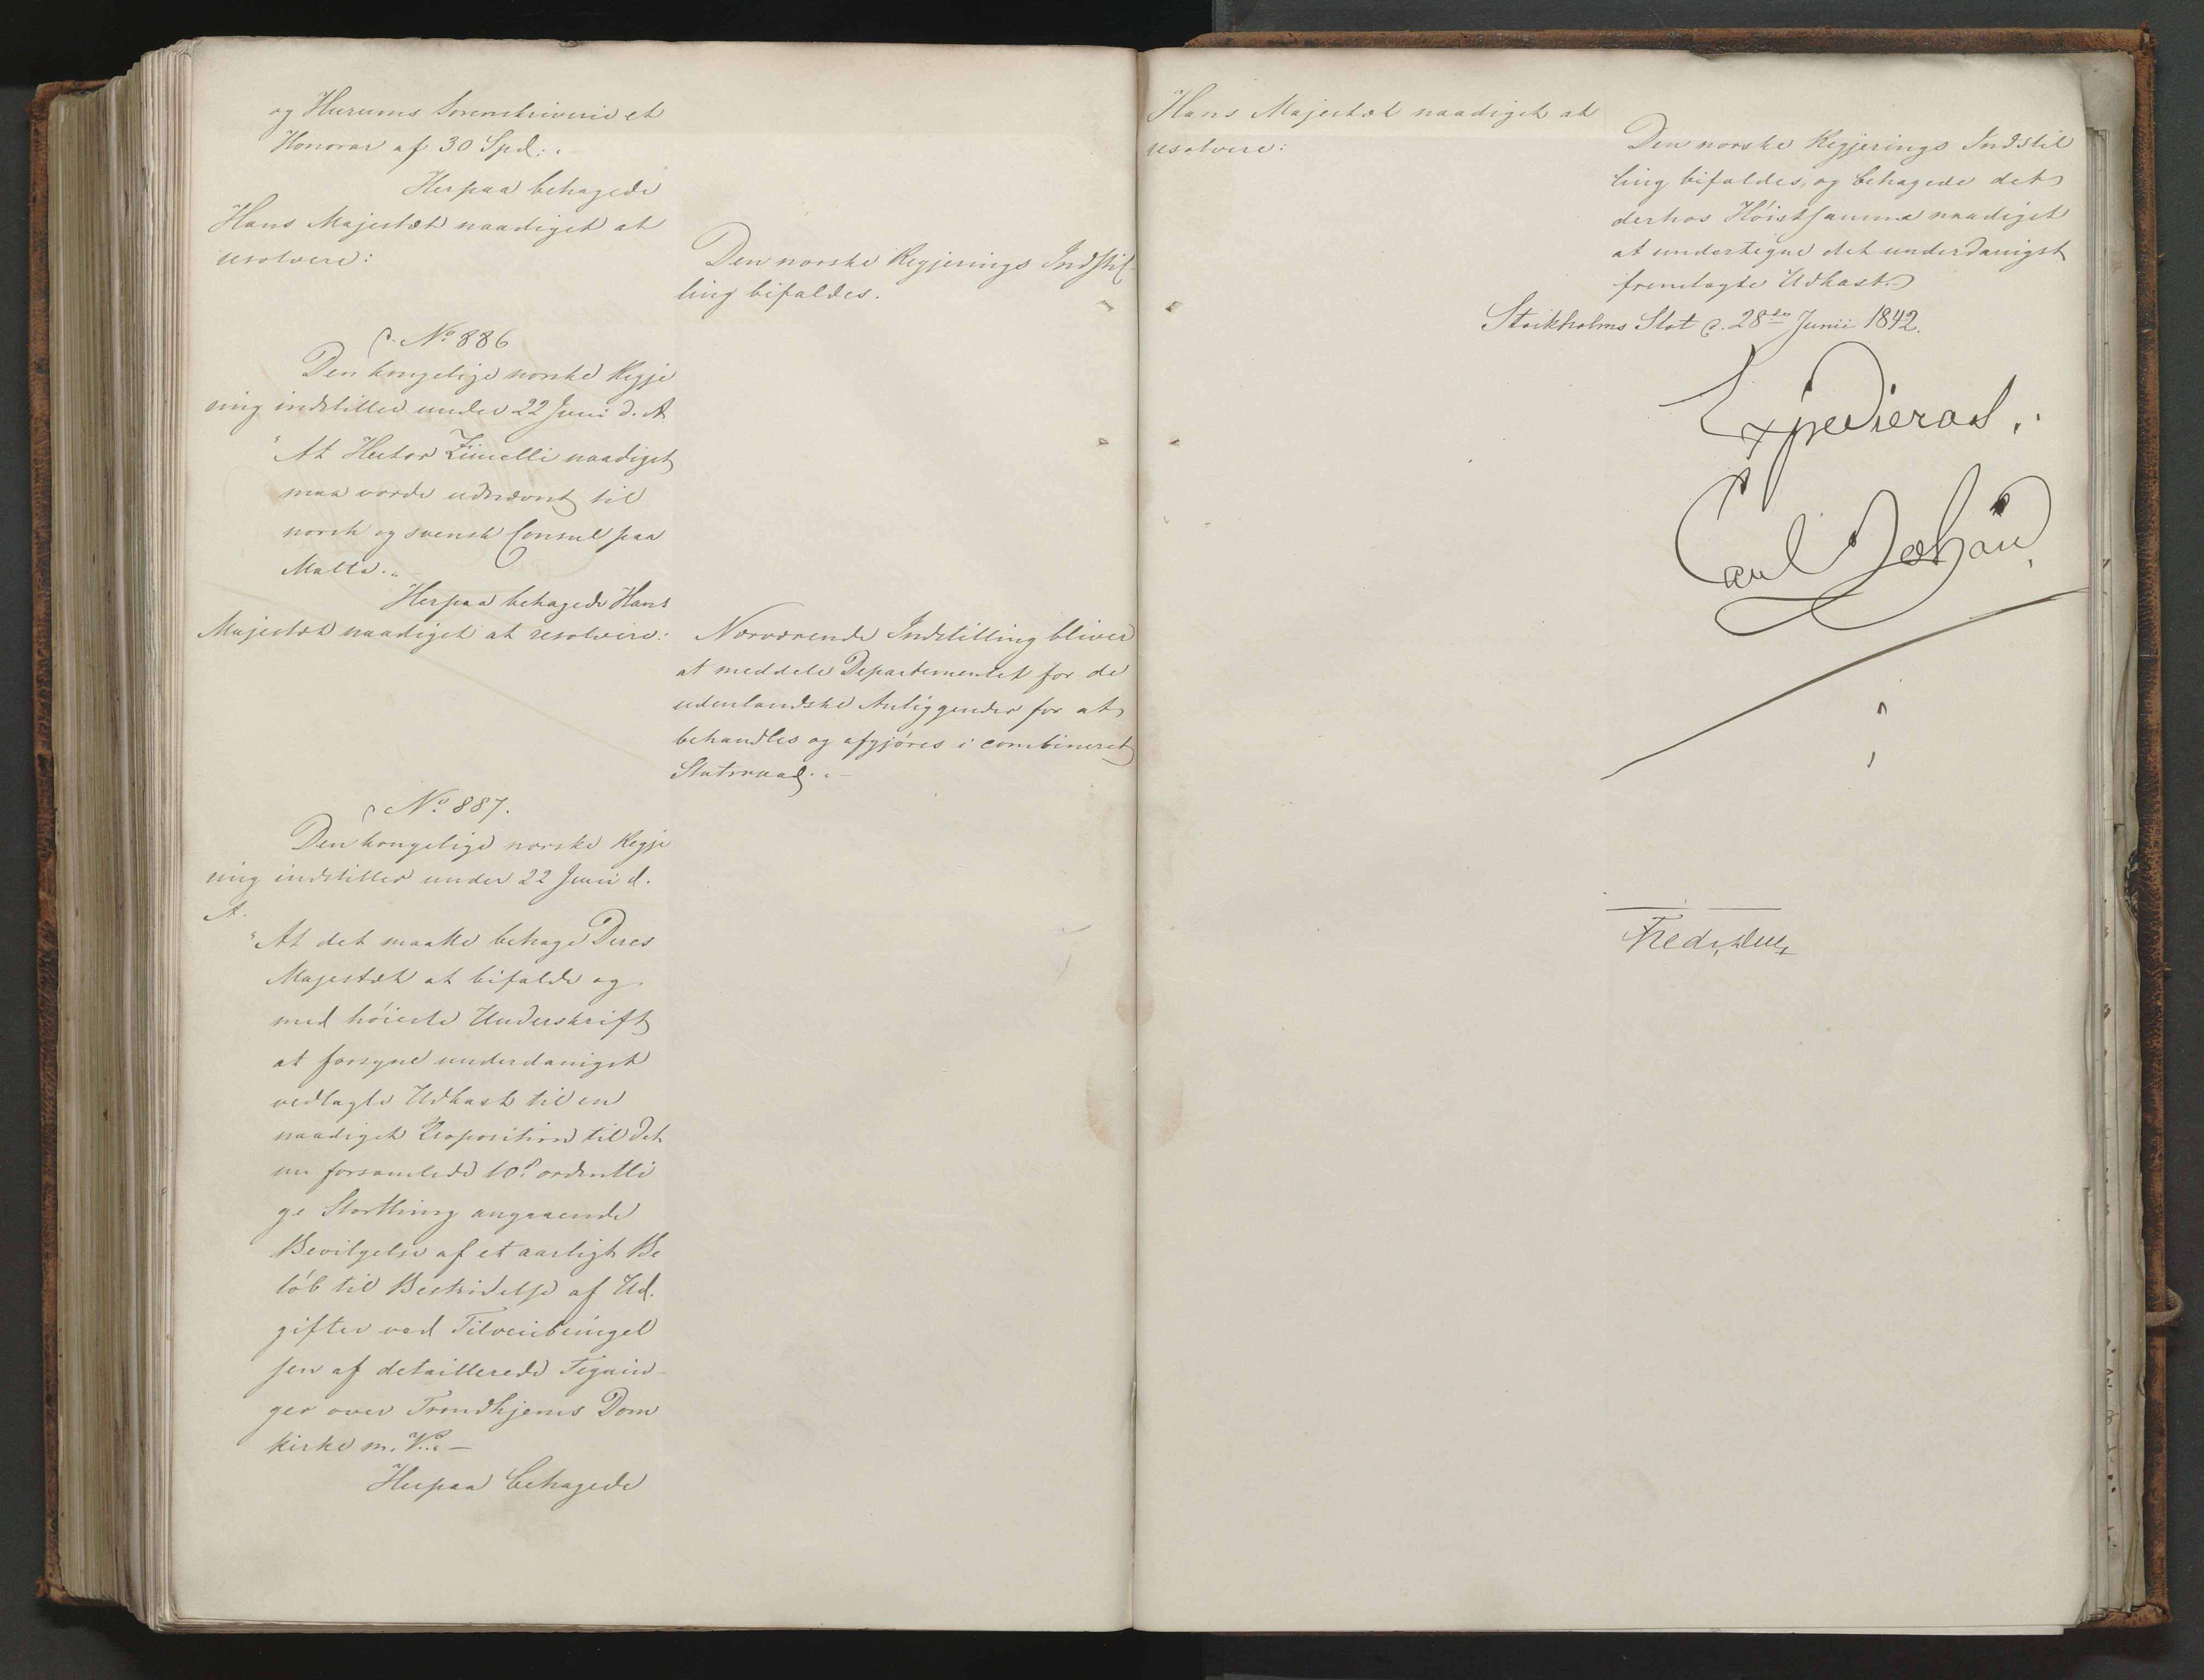 og Hurums Sorenskriverie et
Honorar af 30 Spd:.
Herpaa behagede
Hans Majestæt naadigst at
resolvere:
Den norske Regjerings Indstil-
ling bifaldes.
No 886
Den kongelige norske Regje
ring indstiller under 22 Juni d. A.
"At Hector Zimelli naadigst
maa vorde udnævnt til
norsk og svensk Consul paa
Malta."
Herpaa behagede Hans
Majestæt naadigst at resolvere:
Nærværende Indstilling bliver
at meddele Departementet for de
udenlandske Anliggender for at
behandles og afgjøres i combineret
Statsraad.
No 887.
Den kongelige norske Regje
ring indstiller under 22 Juni d.
A.
"At det maatte behage Deres
Majestæt at bifalde og
med høieste Underskrift
at forsyne underdanigst
vedlagte Udkast til en
naadigst Proposition til det
nu forsamlede 10de ordentli
ge Storthing angaaende
Bevilgelse af et aarligt Be
løb til Bestridelse af Ud-
gifter ved Tilveiebringel
sen af detaillerede Tegnin-
ger over Trondhjems Dom
kirke m. V."
Herpaa behagede
Hans Majestæt naadigst at
resolvere:
Den norske Regjerings Indstil
ling bifaldes, og behagede det
derhos Høistsamme naadigst
at undertegne det underdanigst
fremlagte Udkast.
Stockholms Slot d. 28de Junii 1842.
Expedieras.
Carl Johan
Fredr. Due